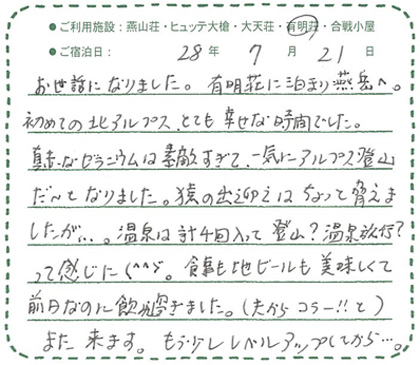 ●ご利用施設：燕山荘・ヒュッテ大槍・大天荘・有明荘・合戦小屋
●ご宿泊日： 28 年 7 月 21 日
お世話になりました。有明荘に泊まり燕岳へ。
初めての北アルプス、とても幸せな時間でした。
真赤なゼラニウムは素敵すぎて、一気にアルプス登山
だ〜となりました。猿の出迎えはちょっと驚きま
したが…。温泉は計4回入って登山？温泉旅行？
って感じに(^^ゞ。食事も地ビールも美味しくて
前日なのに飲み過ぎました。(夫からコラー!!と)
また来ます。もう少しレベルアップしてから…。